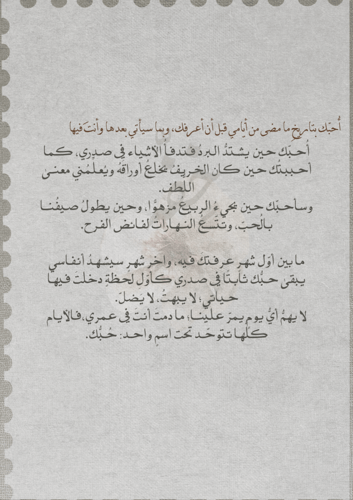 أُحبّك بتاريخ ما مضى من أيامي قبل أن أعرفك، وبما سيأتي بعدها وأنتَ فيها
أحبّك حين يشتدُّ البردُ فتدفأ الأشياء في صدري، كما
أحببتُك حين كان الخريفُ يخلعُ أوراقَهُ ويُعلّمُني معنىٰ
اللطف.
وسأحبّك حين يجيءُ الربيعُ مزهوًّا، وحين يطولُ صيفُنا
بالحبّ، وتتّسعُ النهاراتُ لفائض الفرح.
ما بين أوّل شهرٍ عرفتك فيه، وآخر شهرٍ سيشهدُ أنفاسي
يبقى حبُّك ثابتًا في صدري كأوّل لحظةٍ دخلتَ فيها
حياتي؛ لا يبهتُ، لا يَضلّ.
لا يهمُّ أيُّ يومٍ يمرّ علينا، ما دمتَ أنتَ في عمري، فالأيام
كلُّها تتوحّد تحت اسمٍ واحد: حُبُّك.